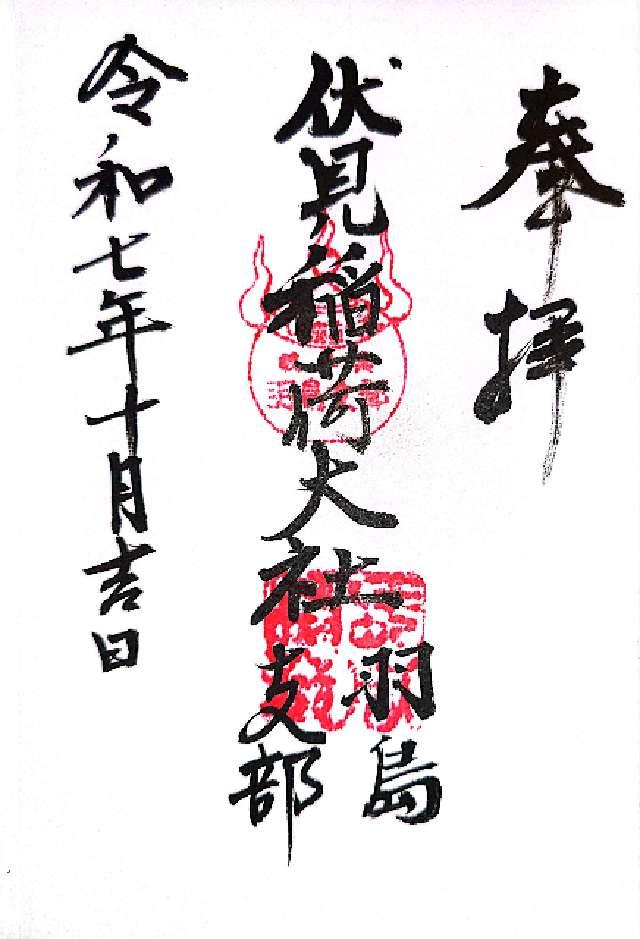 奉拝
伏見稲荷大社
羽島
支部
令和七年十月吉日